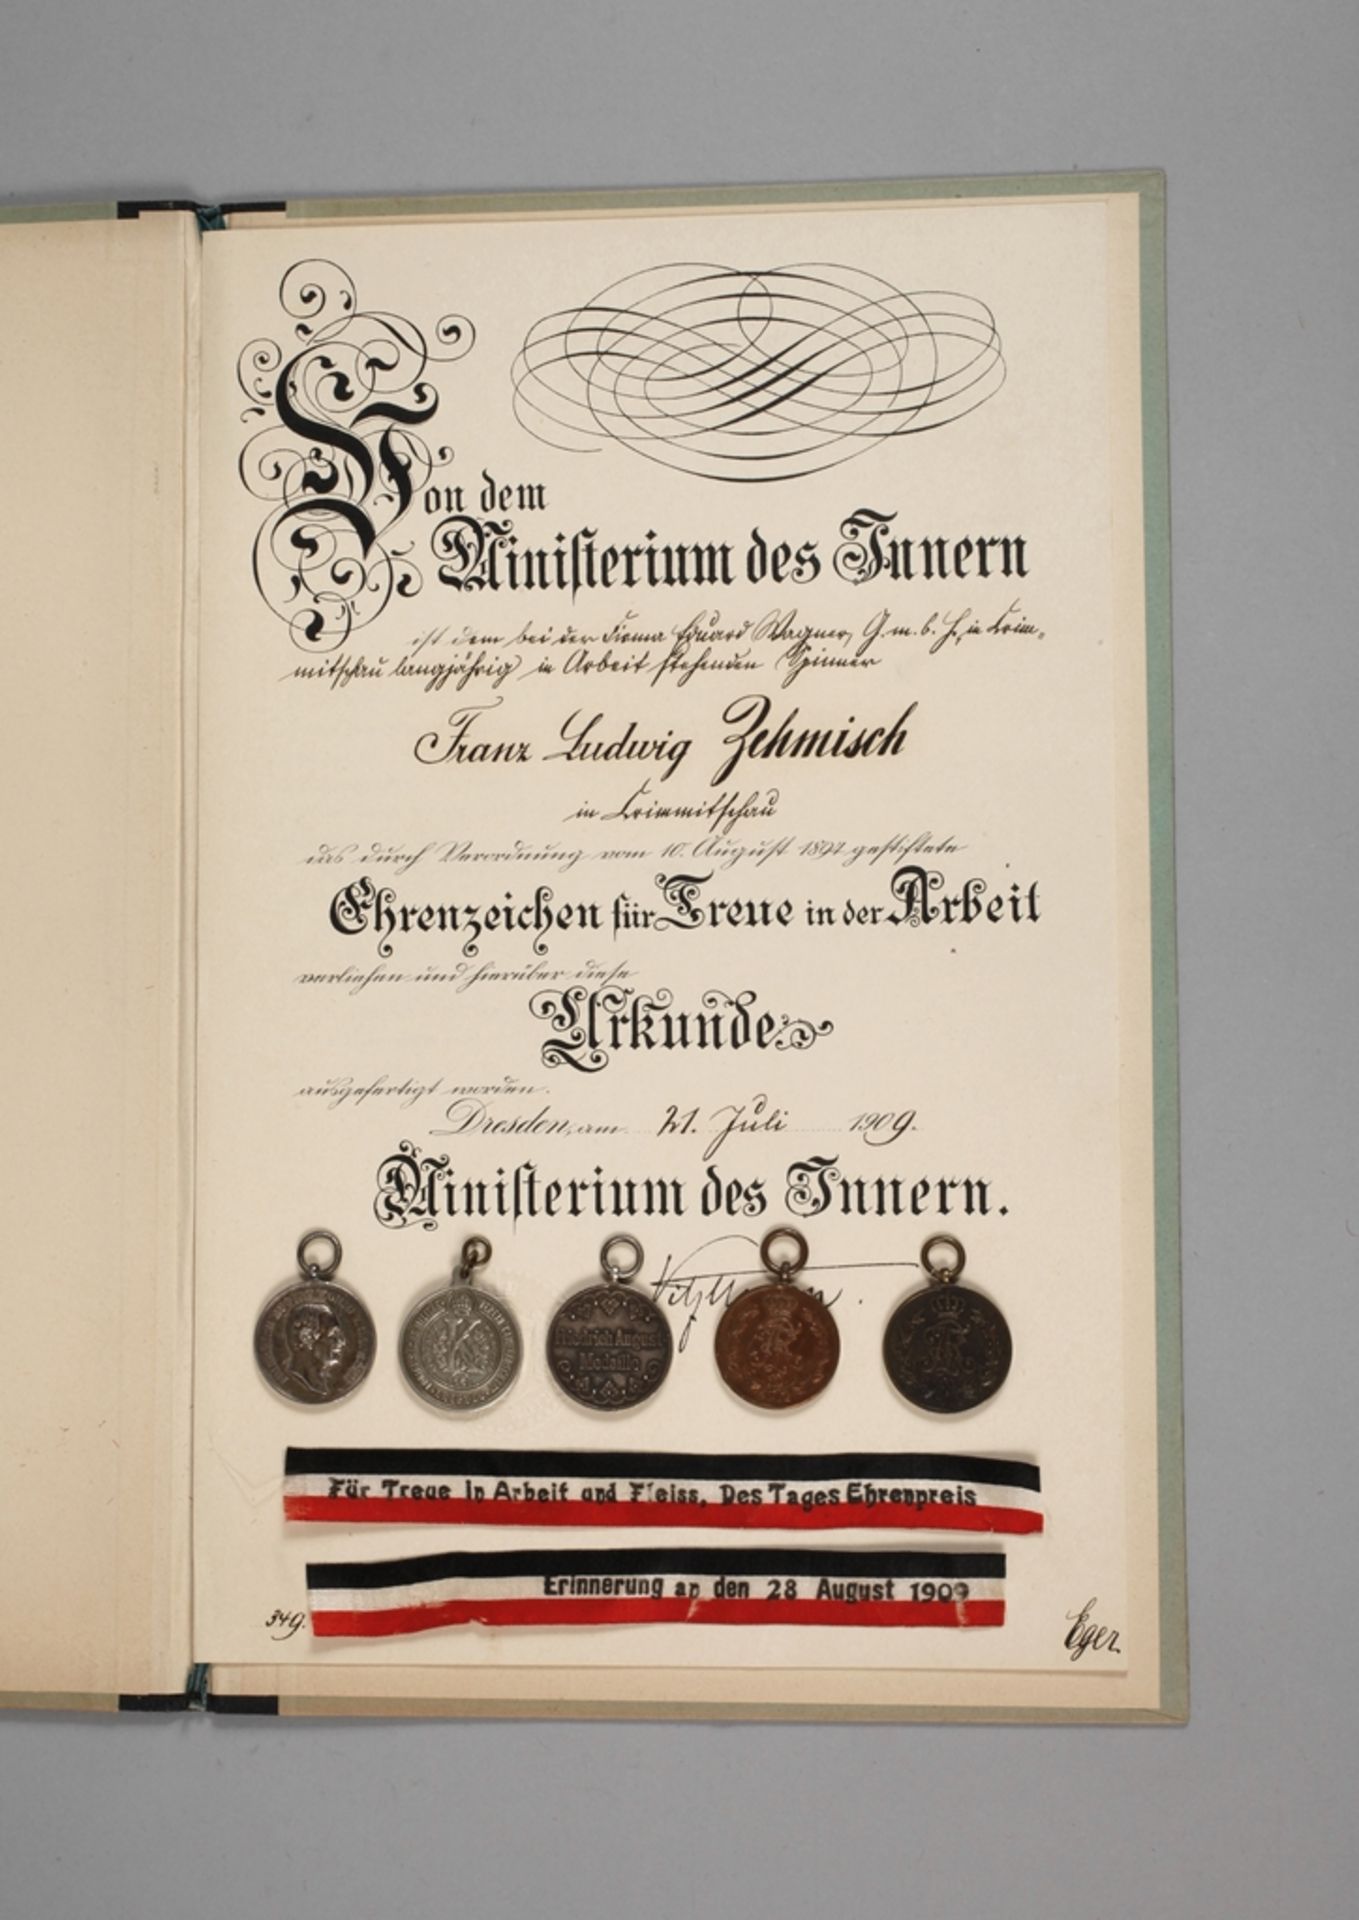 Von dem
Ministerium des Innern
ist dem bei der Firma Eduard Wagner, G.m.b.H. in Crim-
mitschau langjährig in Arbeit stehenden Spinner
Franz Ludwig Zehmisch
in Crimmitschau
das durch Verordnung vom 10. August 1894 gestiftete
Ehrenzeichen für Treue in der Arbeit
verliehen und hierüber diese
Urkunde
ausgefertigt worden.
Dresden, am 21. Juli 1909.
Ministerium des Innern.
Friedrich August
Medaille
Für Treue in Arbeit und Fleiss, Des Tages Ehrenpreis
Erinnerung an den 28 August 1909
349.
Eger.